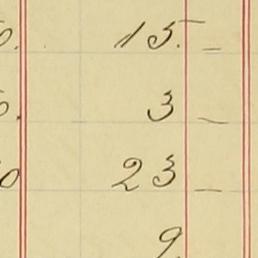 15. –
3 –
23 –
9